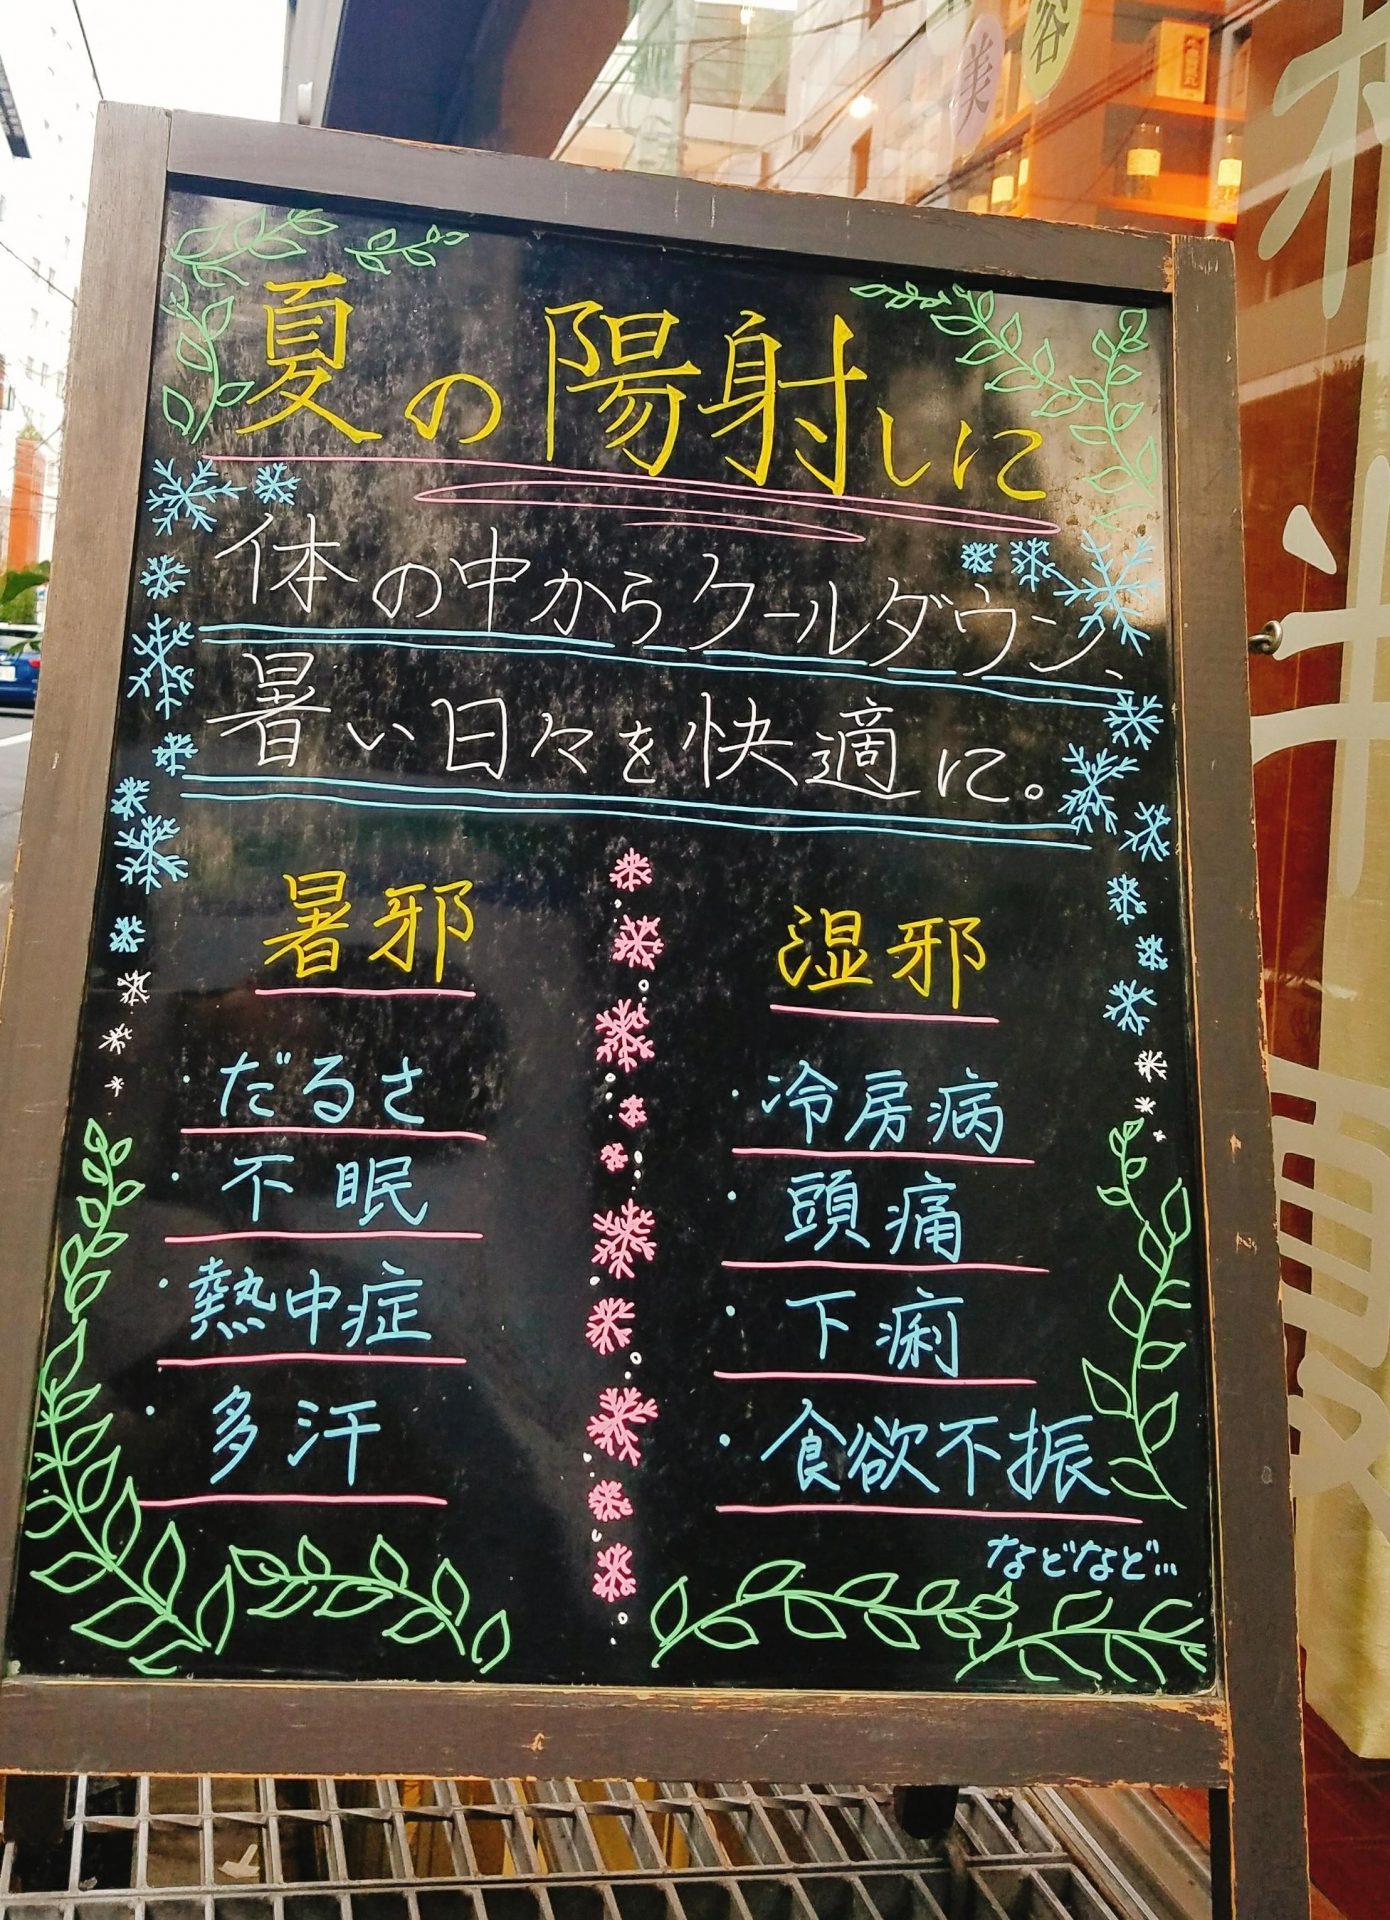 容
美
夏の陽射しに
体の中からクールダウン、
暑い日々を快適に。
暑邪
・だるさ
・不眠
・熱中症
・多汗
湿邪
・冷房病
・頭痛
・下痢
・食欲不振
などなど…